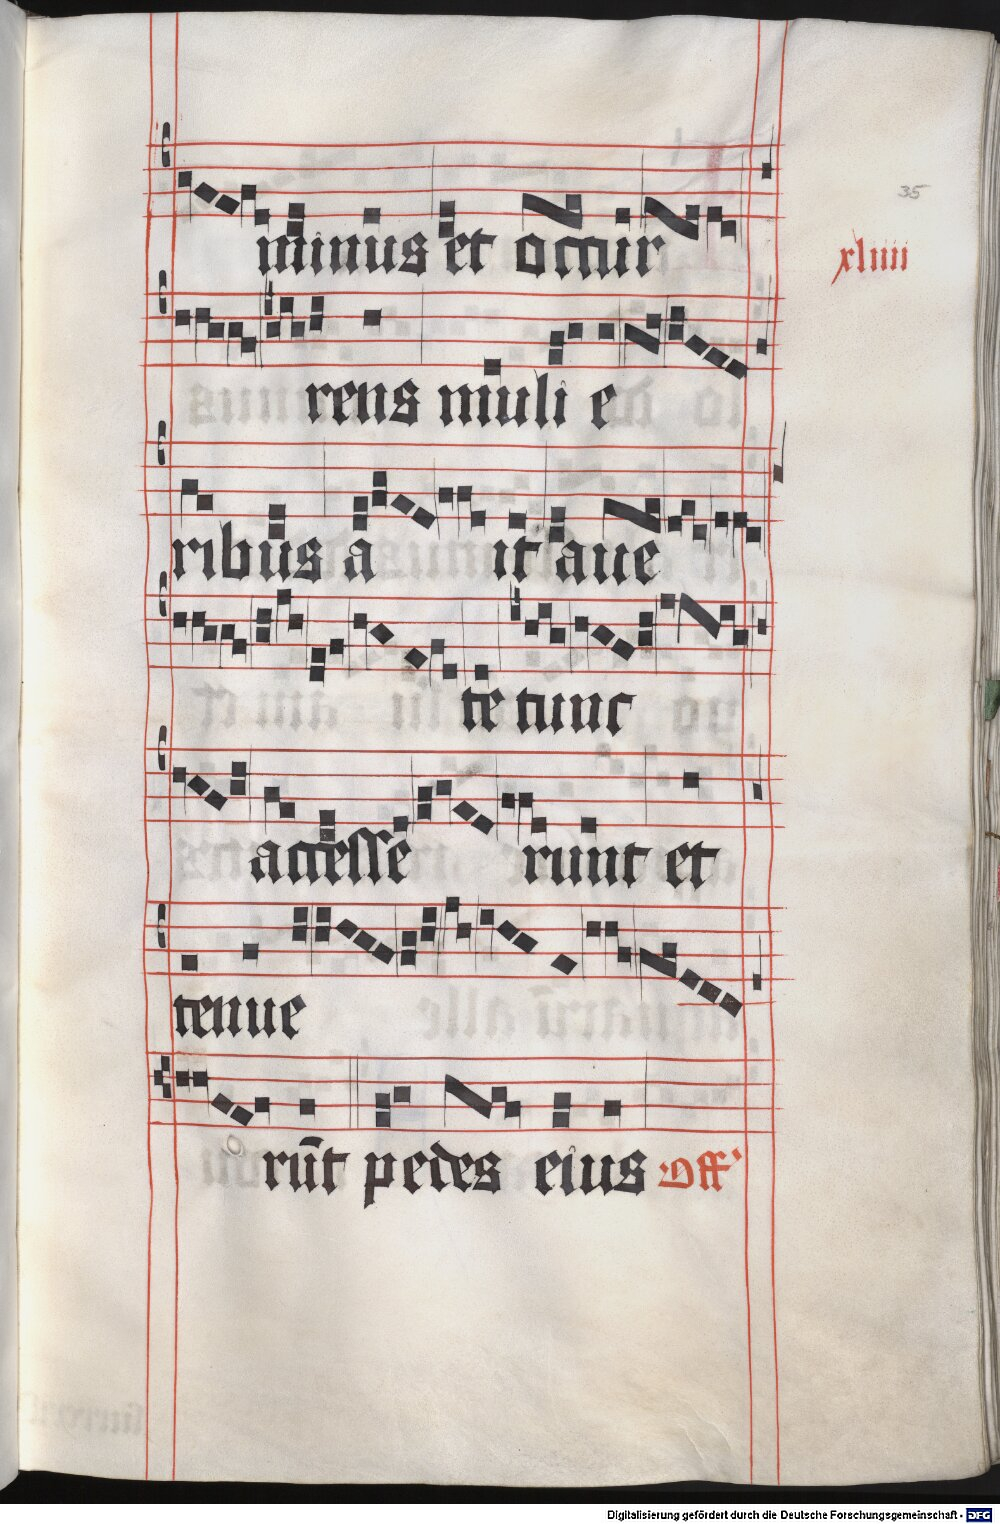 35
xliiii
minus et occur
rens muli e
ribus a it aue
te tunc
accesse runt et
tenue
rūt pedes eius Off
Digitalisierung gefördert durch die Deutsche Forschungsgemeinschaft - DFG